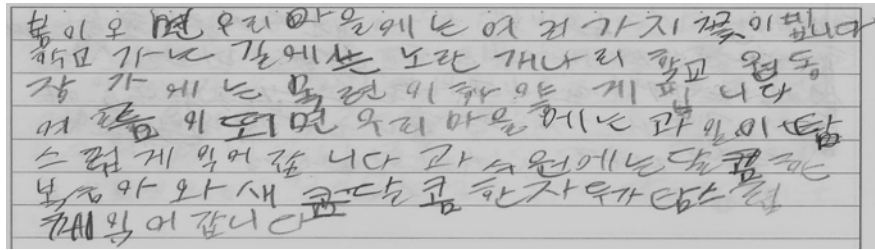 봄이 오면 우리 마을에는 여러 가지 꽃이 핍니다
학교 가는 길에는 노란 개나리 학교 운동
장 가에는 목련이 하얗게 핍니다
여름이 되면 우리 마을에는 과일이 탐
스럽게 익어 갑니다 과수원에는 달콤한
복숭아와 새콤달콤한 자두가 탐스럽
게 익어 갑니다